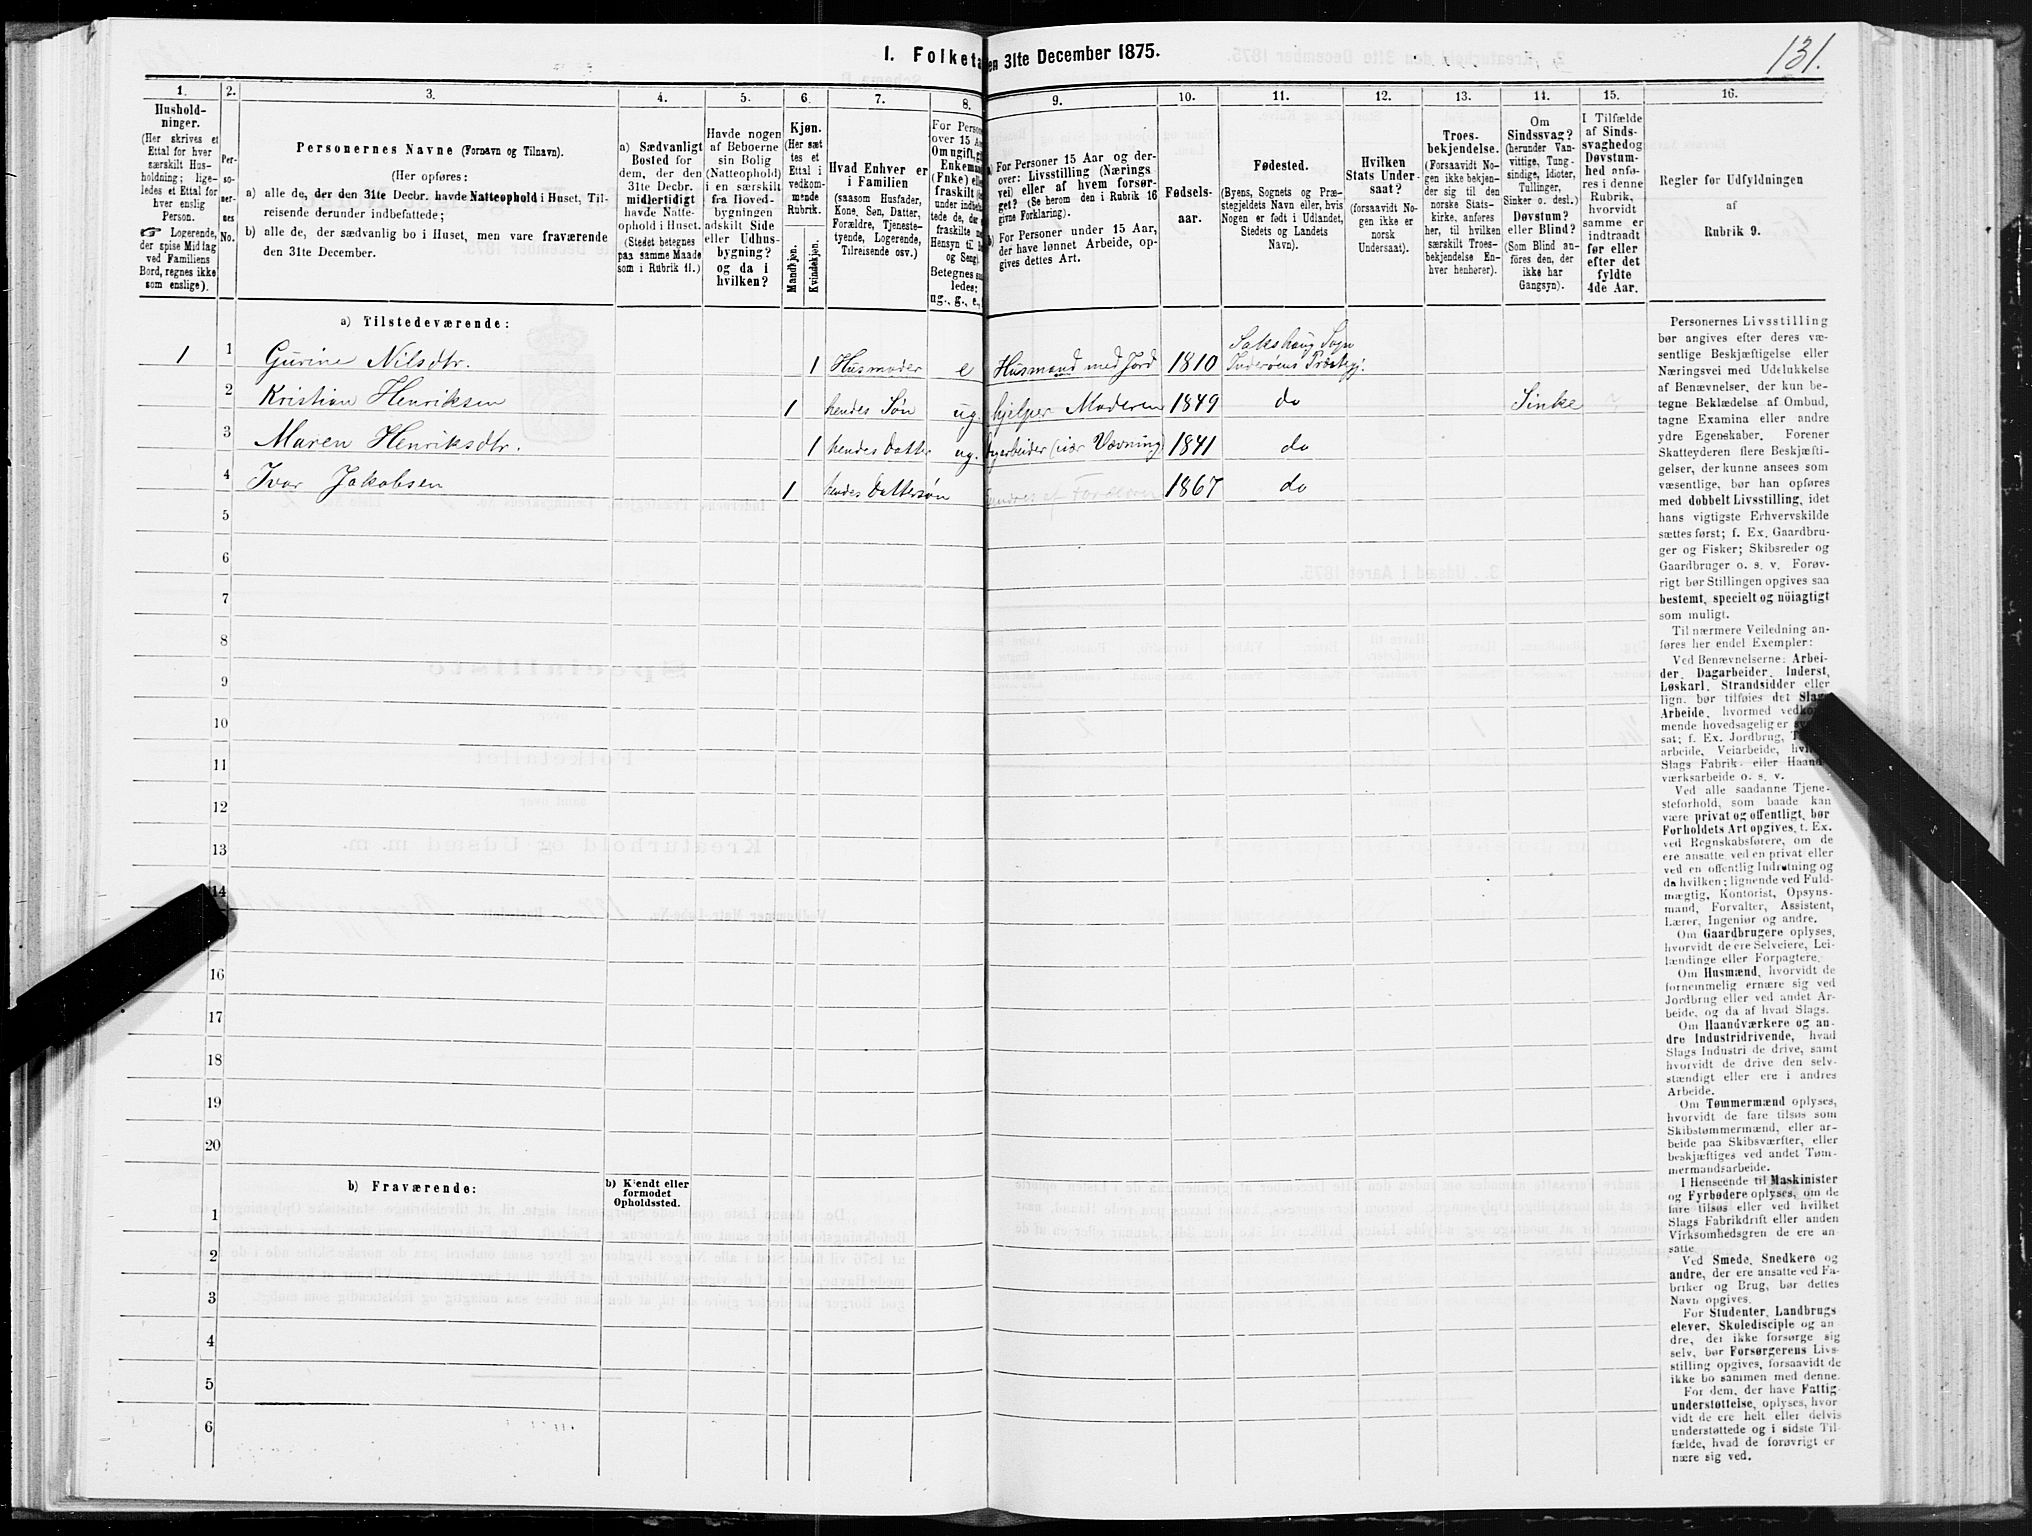 I. Folketa en 31te December 1875.
131.
1.
Hushold-
ninger.
(Her skrives et
Ettal for hver
særskilt Hus-
holdning; lige-
ledes et Ettal for
hver enslig
Person.
☞ Logerende,
der spise Middag
ved Familiens
Bord, regnes ikke
som enslige).
2.
Per-
so-
ner-
nes
No.
3.
Personernes Navne (Fornavn og Tilnavn).
(Her opføres:
a) alle de, der den 31te Decbr. havde Natteophold i Huset, Til-
reisende derunder indbefattede;
b) alle de, der sædvanlig bo i Huset, men vare fraværende
den 31te December.
4.
a) Sædvanligt
Bosted for
dem, der den
31te Decbr.
midlertidigt
havde Natte-
ophold i Huset.
(Stedet betegnes
paa samme Maade
som i Rubrik 11.)
5.
Havde nogen
af Beboerne
sin Bolig
(Natteophold)
i en særskilt
fra Hoved-
bygningen
adskilt Side
eller Udhus-
bygning?
og da i
hvilken?
6.
Kjøn.
(Her sæt
tes et
Ettal i
vedkom-
mende
Rubrik.
Mandkjøn.
Kvindekjøn.
7.
Hvad Enhver er
i Familien
(saasom Husfader,
Kone, Søn, Datter,
Forældre, Tjeneste-
tyende, Logerende,
Tilreisende osv.)
8.
For Perso
over 15 Aa
Omugift, gi
Enkemand
(Enke) ell
fraskilt
ug., g., e.,
9.
a) For Personer 15 Aar og der-
over: Livsstilling (Nærings
vei) eller af hvem forsør-
get? (Se herom den i Rubrik 16
givne Forklaring).
b) For Personer under 15 Aar,
der have lønnet Arbeide, op-
gives dettes Art.
10.
Fødsels-
aar.
11.
Fødested.
(Byens, Sognets og Præ-
stegjeldets Navn eller, hvis
Nogen er født i Udlandet,
Stedets og Landets
Navn).
12.
Hvilken
Stats Under-
saat?
(forsaavidt No-
gen ikke er
norsk
Undersaat).
13.
Troes-
bekjendelse.
(Forsaavidt No-
gen ikke bekjen-
der sig til den
norske Stats-
kirke, anføres
her, til hvilken
særskilt Troes-
bekjendelse En-
hver henhører).
14.
Om
Sindssvag?
(herunder Van-
vittige, Tung-
sindige, Idioter,
Tullinger,
Sinker o. desl.)
Døvstum?
eller Blind?
(Som Blind an-
føres den, der
ikke har
Gangsyn).
15.
I Tilfælde
af Sinds-
svaghed og
Døvstum-
hed anfø-
res i denne
Rubrik,
hvorvidt
samme er
indtraadt
før eller
efter det
fyldte
4de Aar.
16.
Regler for Udfyldningen
af
Rubrik 9.
a) Tilstedeværende:
1 1 Gurine Nilsdtr. 1 Husmoder e Husmand med Jord 1810 Sakshaug Sogn Inderøens Præstegj.
2 Kristian Henriksen 1 hendes Søn ug. hjelper Moderen 1849 do Sinke
3 Maren Henriksdtr. 1 hendes Datter ug. Vævning 1841 do
4 Ivar Jakobsen 1 hendes Dattersøn 1867 do
5
6
7
8
9
10
11
12
13
14
16
17
18
19
20
b) Fraværende:
b) Kjendt eller
formodet
Opholdssted.
1
2
3
4
5
6
Personernes Livsstilling
bør angives efter deres væ-
sentlige Beskjæftigelse eller
Næringsvei med Udelukkelse
af Benævnelser, der kun be-
tegne Beklædelse af Ombud,
tagne Examina eller andre
ydre Egenskaber. Forener
Skatteyderen flere Beskjæfti-
gelser, der kunne ansees som
væsentlige, bør han opføres
med dobbelt Livsstilling, idet
hans vigtigste Erhvervskilde
sættes først; f. Ex. Gaardbru-
ger og Fisker; Skibsreder og
Gaardbruger o. s. v. Forøv-
rigt bør Stillingen opgives saa
bestemt, specielt og nöiagtigt
som muligt.
Til nærmere Veiledning an-
føres her endel Exempler:
Ved Benævnelserne: Arbei-
der, Dagarbeider, Inderst,
Løskarl, Strandsidder eller
lign. bør tilføies det Slags
Arbeide, hvormed vedkom-
mende hovedsagelig er
sat; f. Ex. Jordbrug,
arbeide, Veiarbeide,
Slags Fabrik- eller Haand-
værksarbeide o. s. v.
Ved alle saadanne Tjene-
steforhold, som baade kan
være privat og offentligt, bør
Forholdets Art opgives, t. Ex.
ved Regnskabsførere, om de
ere ansatte ved en privat eller
ved en offentlig Indretning og
da hvilken; lignende ved Fuld-
mægtig, Kontorist, Opsyns-
mand, Forvalter, Assistent,
Lærer, Ingeniør og andre.
Om Gaardbrugere oplyses,
hvorvidt de ere Selveiere, Lei-
lændinge eller Forpagtere.
Om Husmænd, hvorvidt de
fornemmelig ernære sig ved
Jordbrug eller ved andet Ar-
beide, og da af hvad Slags.
Om Haandværkere og an-
dre Industridrivende, hvad
Slags Industri de drive, samt
hvorvidt de drive den selv-
stændigt eller ere i andres
Arbeide.
Om Tømmermænd oplyses,
hvorvidt de fare tilsøs som
Skibstømmermænd, eller ar-
beide paa Skibsværfter, eller
beskjæftiges ved andet Tøm-
mermandsarbeide.
I Henseende til Maskinister
og Fyrbødere oplyses, om de
fare tilsøs eller ved hvilket
Slags Fabrikdrift eller anden
Virksomhedsgren de ere an-
satte.
Ved Smede, Snedkere og
andre, der ere ansatte ved Fa-
briker og Brug, bør dettes
Navn opgives.
For Studenter, Landbrugs
elever, Skoledisciple og an-
dre, der ikke forsørge sig
selv, bør Forsørgerens Livs-
stilling opgives, forsaavidt de
ikke bo sammen med denne.
For dem, der have Fattig-
understøttelse, oplyses, hvor
vidt de ere helt eller delvis
understøttede og i sidste Til-
fælde, hvad de forøvrigt er
nære sig ved.